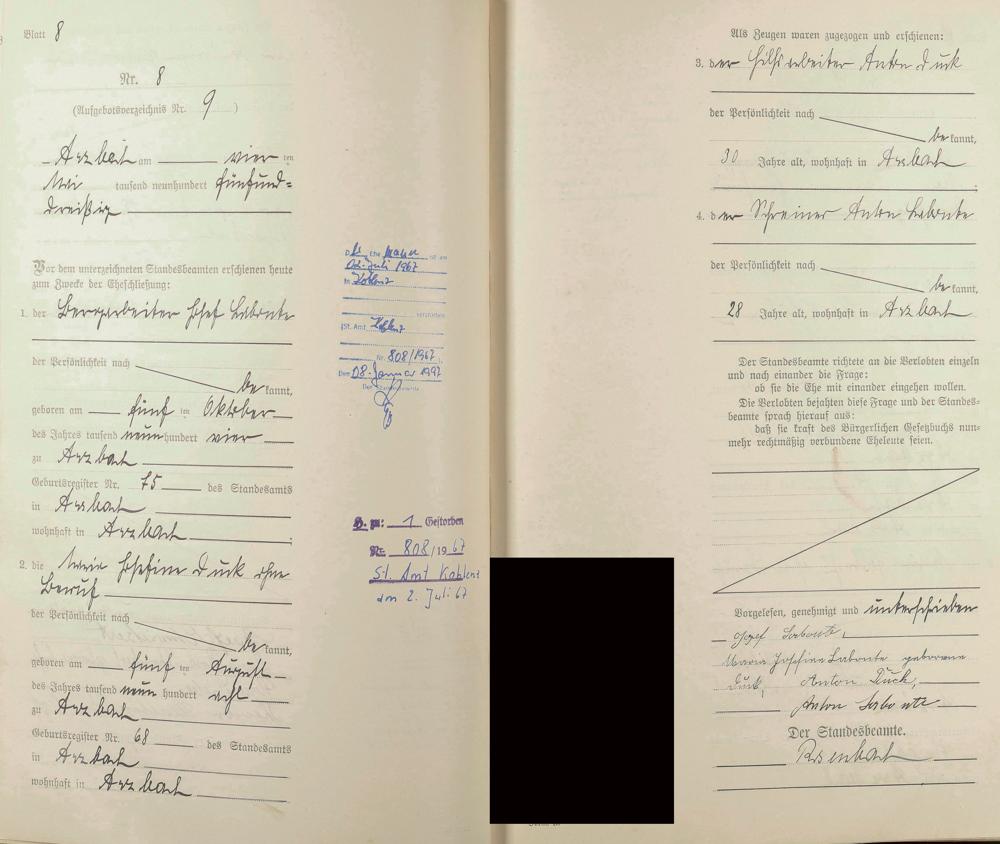 Blatt 8
Nr. 8
(Aufgebotsverzeichnis Nr. 9)
Arzbach am vier ten
Mai tausend neunhundert fünfund=
dreißig
Vor dem unterzeichneten Standesbeamten erschienen heute
zum Zwecke der Eheschließung:
1. der Bergarbeiter Josef Labonte
der Persönlichkeit nach
be kannt,
geboren am fünf ten Oktober
des Jahres tausend neun hundert vier
zu Arzbach
Geburtsregister Nr. 75 des Standesamts
in Arzbach
wohnhaft in Arzbach
2. die Maria Josefine Duck ohne
Beruf
der Persönlichkeit nach
be kannt,
geboren am fünf ten August
des Jahres tausend neun hundert acht
zu Arzbach
Geburtsregister Nr. 68 des Standesamts
in Arzbach
wohnhaft in Arzbach
Der Ehemann ist am
02. Juli 1967
in Koblenz
verstorben
(St. Amt Koblenz
Nr. 808/1967).
Den 08. Januar 1992
Der Standesbeamte
H. zu: 1 Gestorben
Nr. 808/1967
St. Amt Koblenz
am 2. Juli 67
Als Zeugen waren zugezogen und erschienen:
3. der Hilfsarbeiter Anton Duck
der Persönlichkeit nach
be kannt,
30 Jahre alt, wohnhaft in Arzbach
4. der Schreiner Anton Labonte
der Persönlichkeit nach
be kannt,
28 Jahre alt, wohnhaft in Arzbach
Der Standesbeamte richtete an die Verlobten einzeln
und nach einander die Frage:
ob sie die Ehe mit einander eingehen wollen.
Die Verlobten bejahten diese Frage und der Standes=
beamte sprach hierauf aus:
daß sie kraft des Bürgerlichen Gesetzbuchs nun=
mehr rechtmäßig verbundene Eheleute seien.
Vorgelesen, genehmigt und unterschrieben
Josef Labonte,
Maria Josefine Labonte geborene
Duck, Anton Duck,
Anton Labonte
Der Standesbeamte.